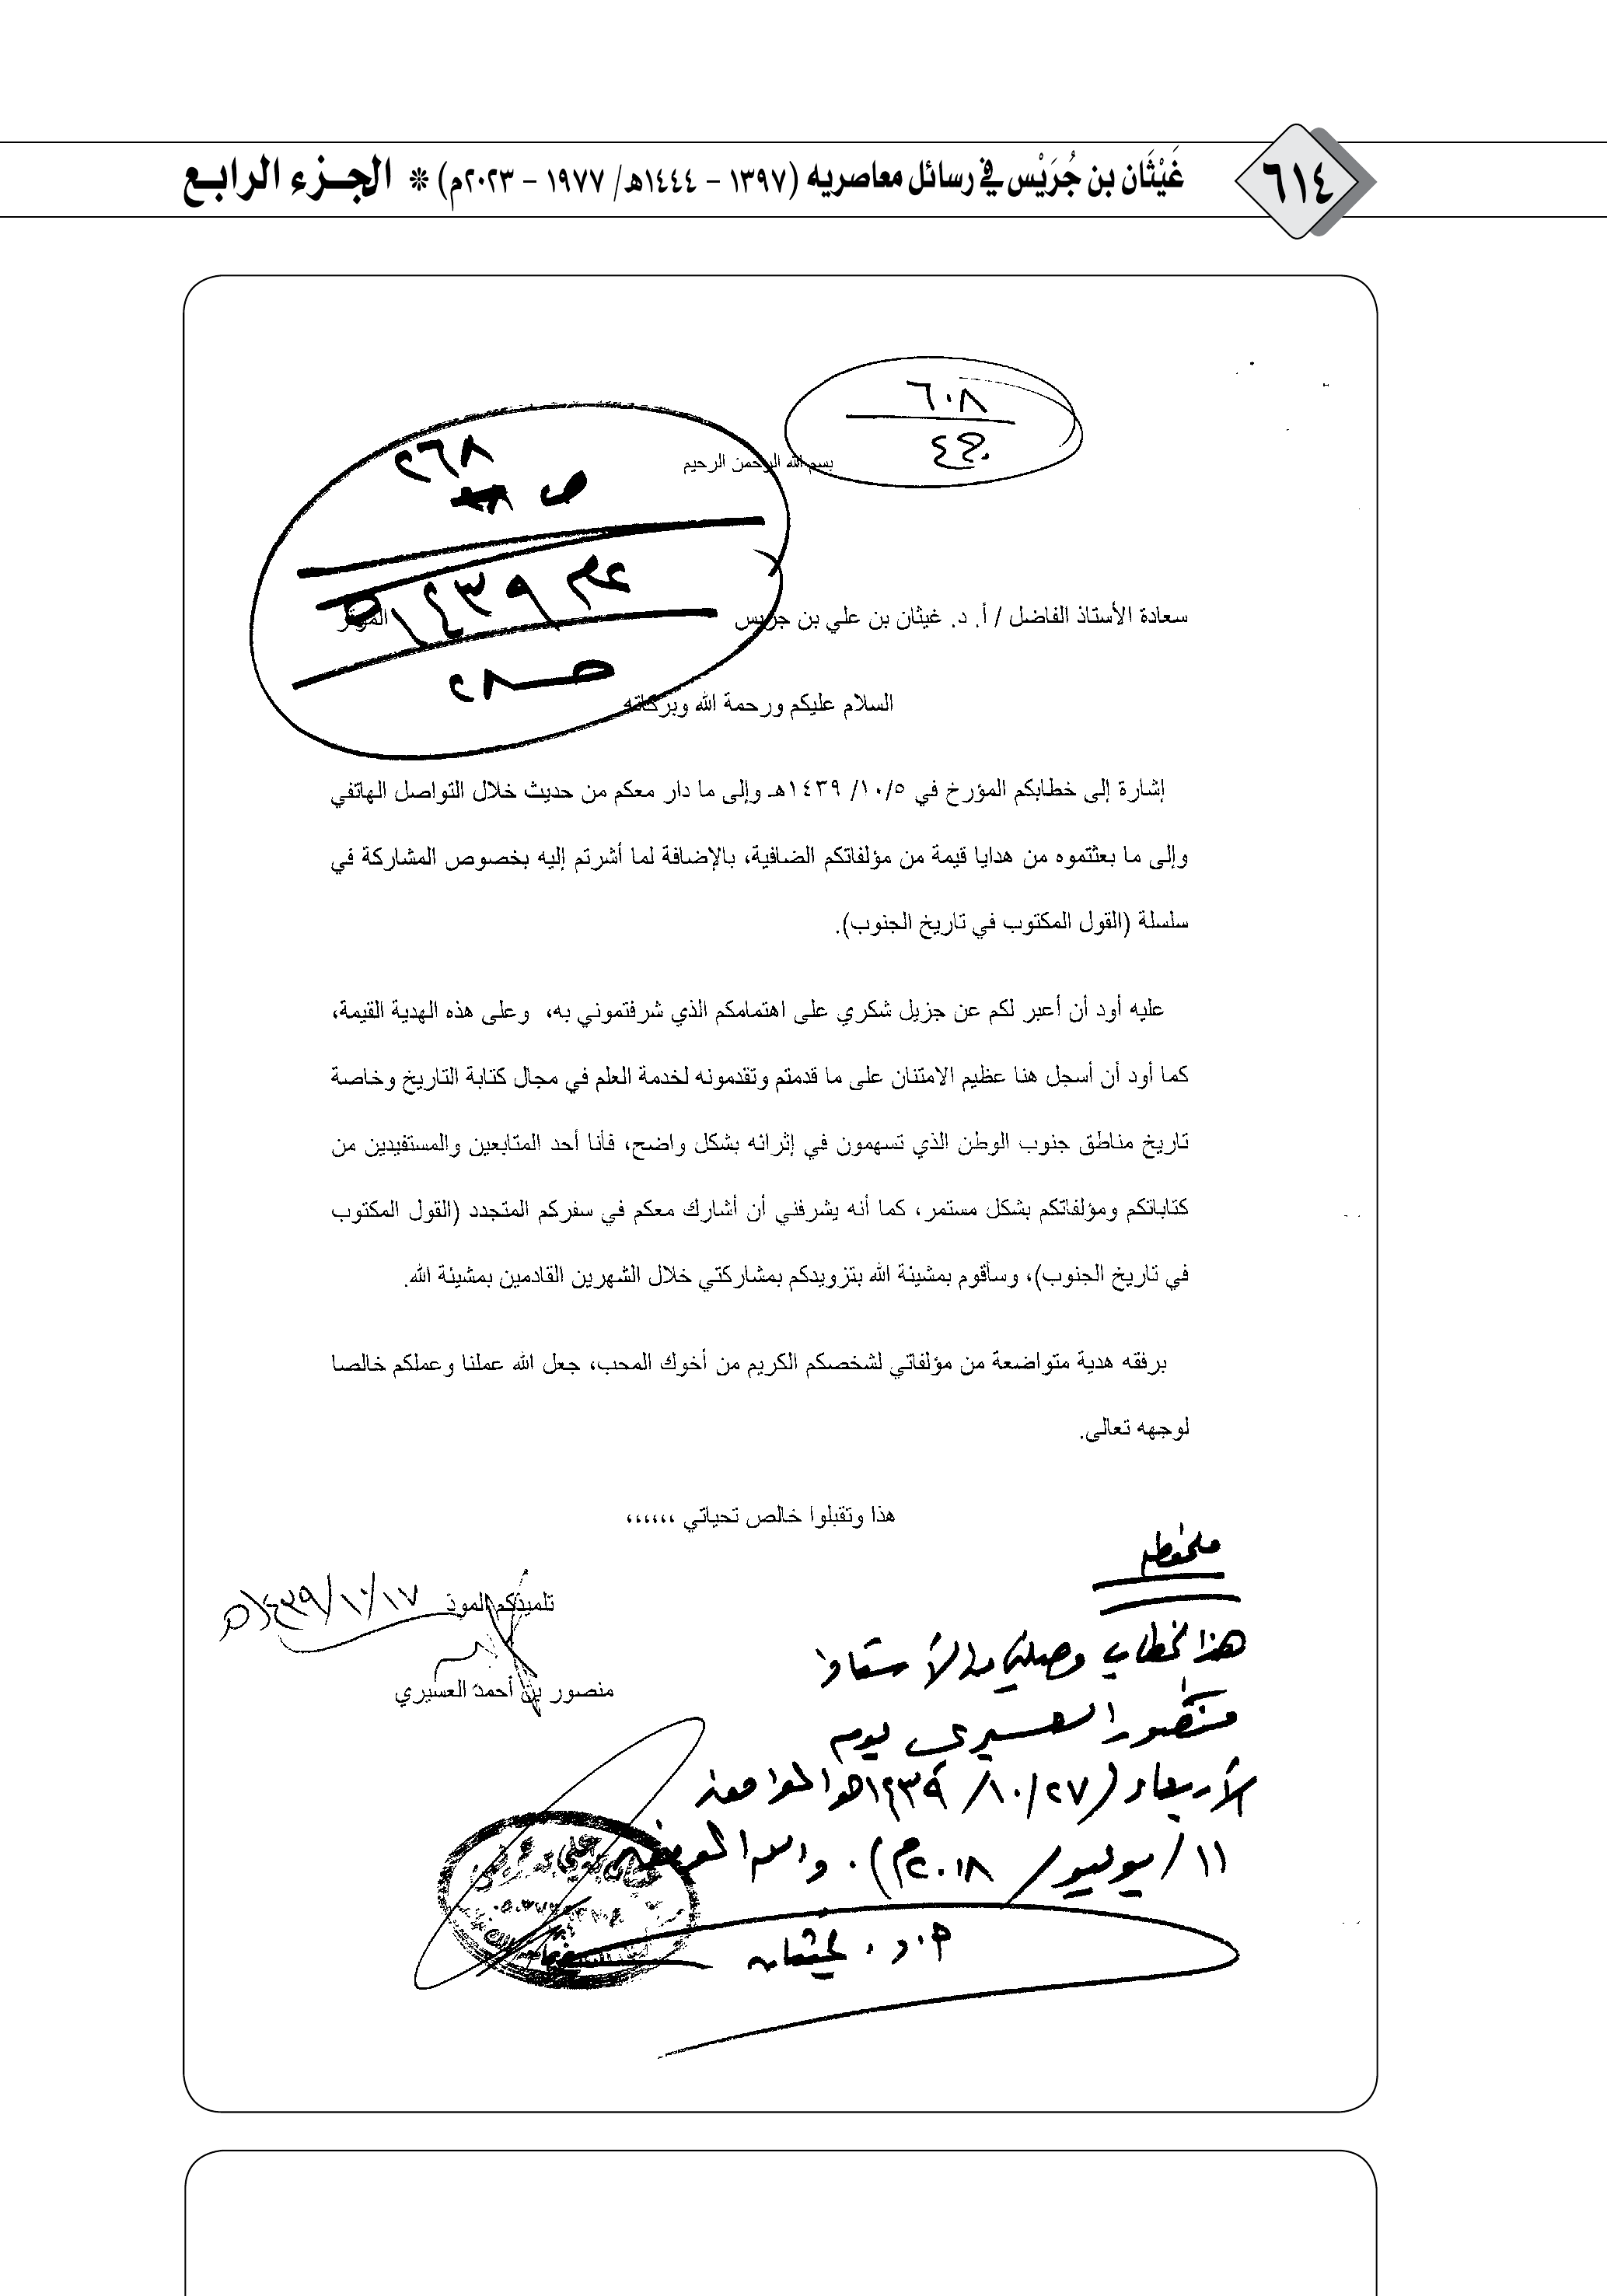 ٦١٤
غَيْثَان بن جُرَيْس في رسائل معاصريه (١٣٩٧ - ١٤٤٤هـ/ ١٩٧٧ - ٢٠٢٣م) * الجزء الرابع
٦٠٨
٤ج
٢٦٨
ص
عام ١٤٣٩هـ
ص ٢٨
بسم الله الرحمن الرحيم
سعادة الأستاذ الفاضل / أ. د. غيثان بن علي بن جريس الموقر
السلام عليكم ورحمة الله وبركاته
إشارة إلى خطابكم المؤرخ في ١٠/٥/ ١٤٣٩هـ وإلى ما دار معكم من حديث خلال التواصل الهاتفي
وإلى ما بعثتموه من هدايا قيمة من مؤلفاتكم الضافية، بالإضافة لما أشرتم إليه بخصوص المشاركة في
سلسلة (القول المكتوب في تاريخ الجنوب).
عليه أود أن أعبر لكم عن جزيل شكري على اهتمامكم الذي شرفتموني به، وعلى هذه الهدية القيمة،
كما أود أن أسجل هنا عظيم الامتنان على ما قدمتم وتقدمونه لخدمة العلم في مجال كتابة التاريخ وخاصة
تاريخ مناطق جنوب الوطن الذي تسهمون في إثرائه بشكل واضح، فأنا أحد المتابعين والمستفيدين من
كتاباتكم ومؤلفاتكم بشكل مستمر، كما أنه يشرفني أن أشارك معكم في سفركم المتجدد (القول المكتوب
في تاريخ الجنوب)، وسأقوم بمشيئة الله بتزويدكم بمشاركتي خلال الشهرين القادمين بمشيئة الله.
برفقه هدية متواضعة من مؤلفاتي لشخصكم الكريم من أخوك المحب، جعل الله عملنا وعملكم خالصا
لوجهه تعالى.
هذا وتقبلوا خالص تحياتي ،،،،،،
تلميذكم
١٤٣٩/١٠/١٧هـ
منصور بن أحمد العسيري
ملحوظة
هذا الخطاب وصلني من الأستاذ
منصور العسيري يوم
الأربعاء (١٠/٢٧/ ١٤٣٩هـ الموافق
١١/يوليو/ ٢٠١٨م). والله الموفق
أ. د. غيثان